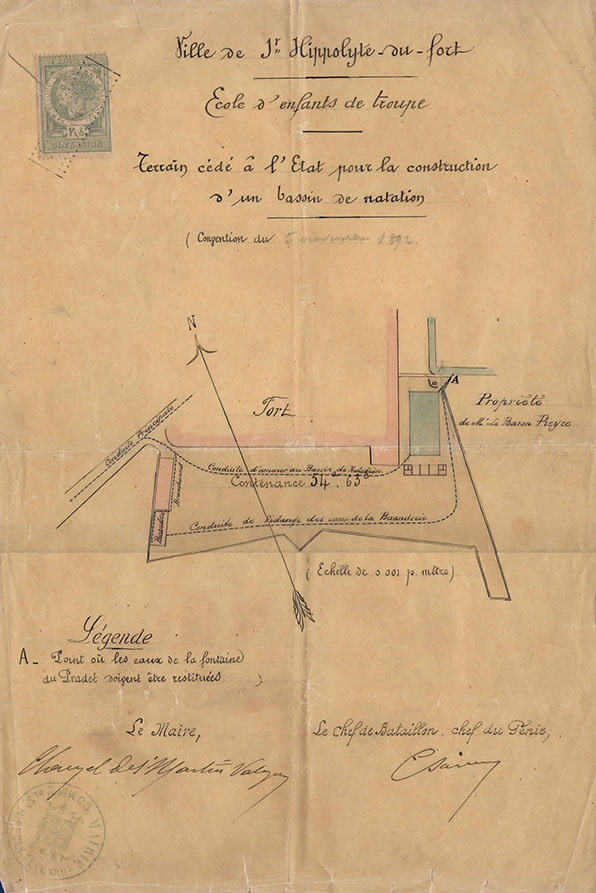 TIMBRE
DIMENSION
Ville de St Hippolyte-du-fort
Ecole d'enfants de troupe
Terrain cédé à l'Etat pour la construction
d'un bassin de natation
( Convention du 5 novembre 1892.
N
Fort
A
Propriété
de Mr Le Baron
Conduite Principale
Conduite d'amenée au Bassin de Natation
Contenance 54a. 63c
Branchement
Buanderie
Conduite de Vidange des eaux de la Buanderie
( Echelle de 0.001 p. mètre )
Légende
A - Point où les eaux de la fontaine
du Pradet doivent être restituées
Le Maire,
Le Chef de Bataillon, chef du Génie,
MAIRIE